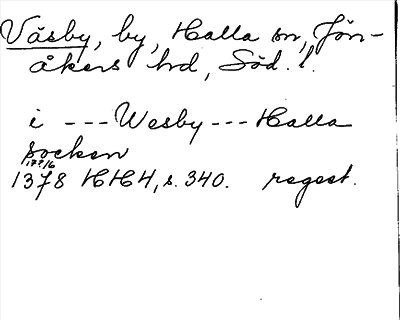 Väsby, by, Halla sn, Jön-
åkers hd, Söd. l.
i --- Wesby --- Halla
socken
1378 HH4, s. 340. regest.